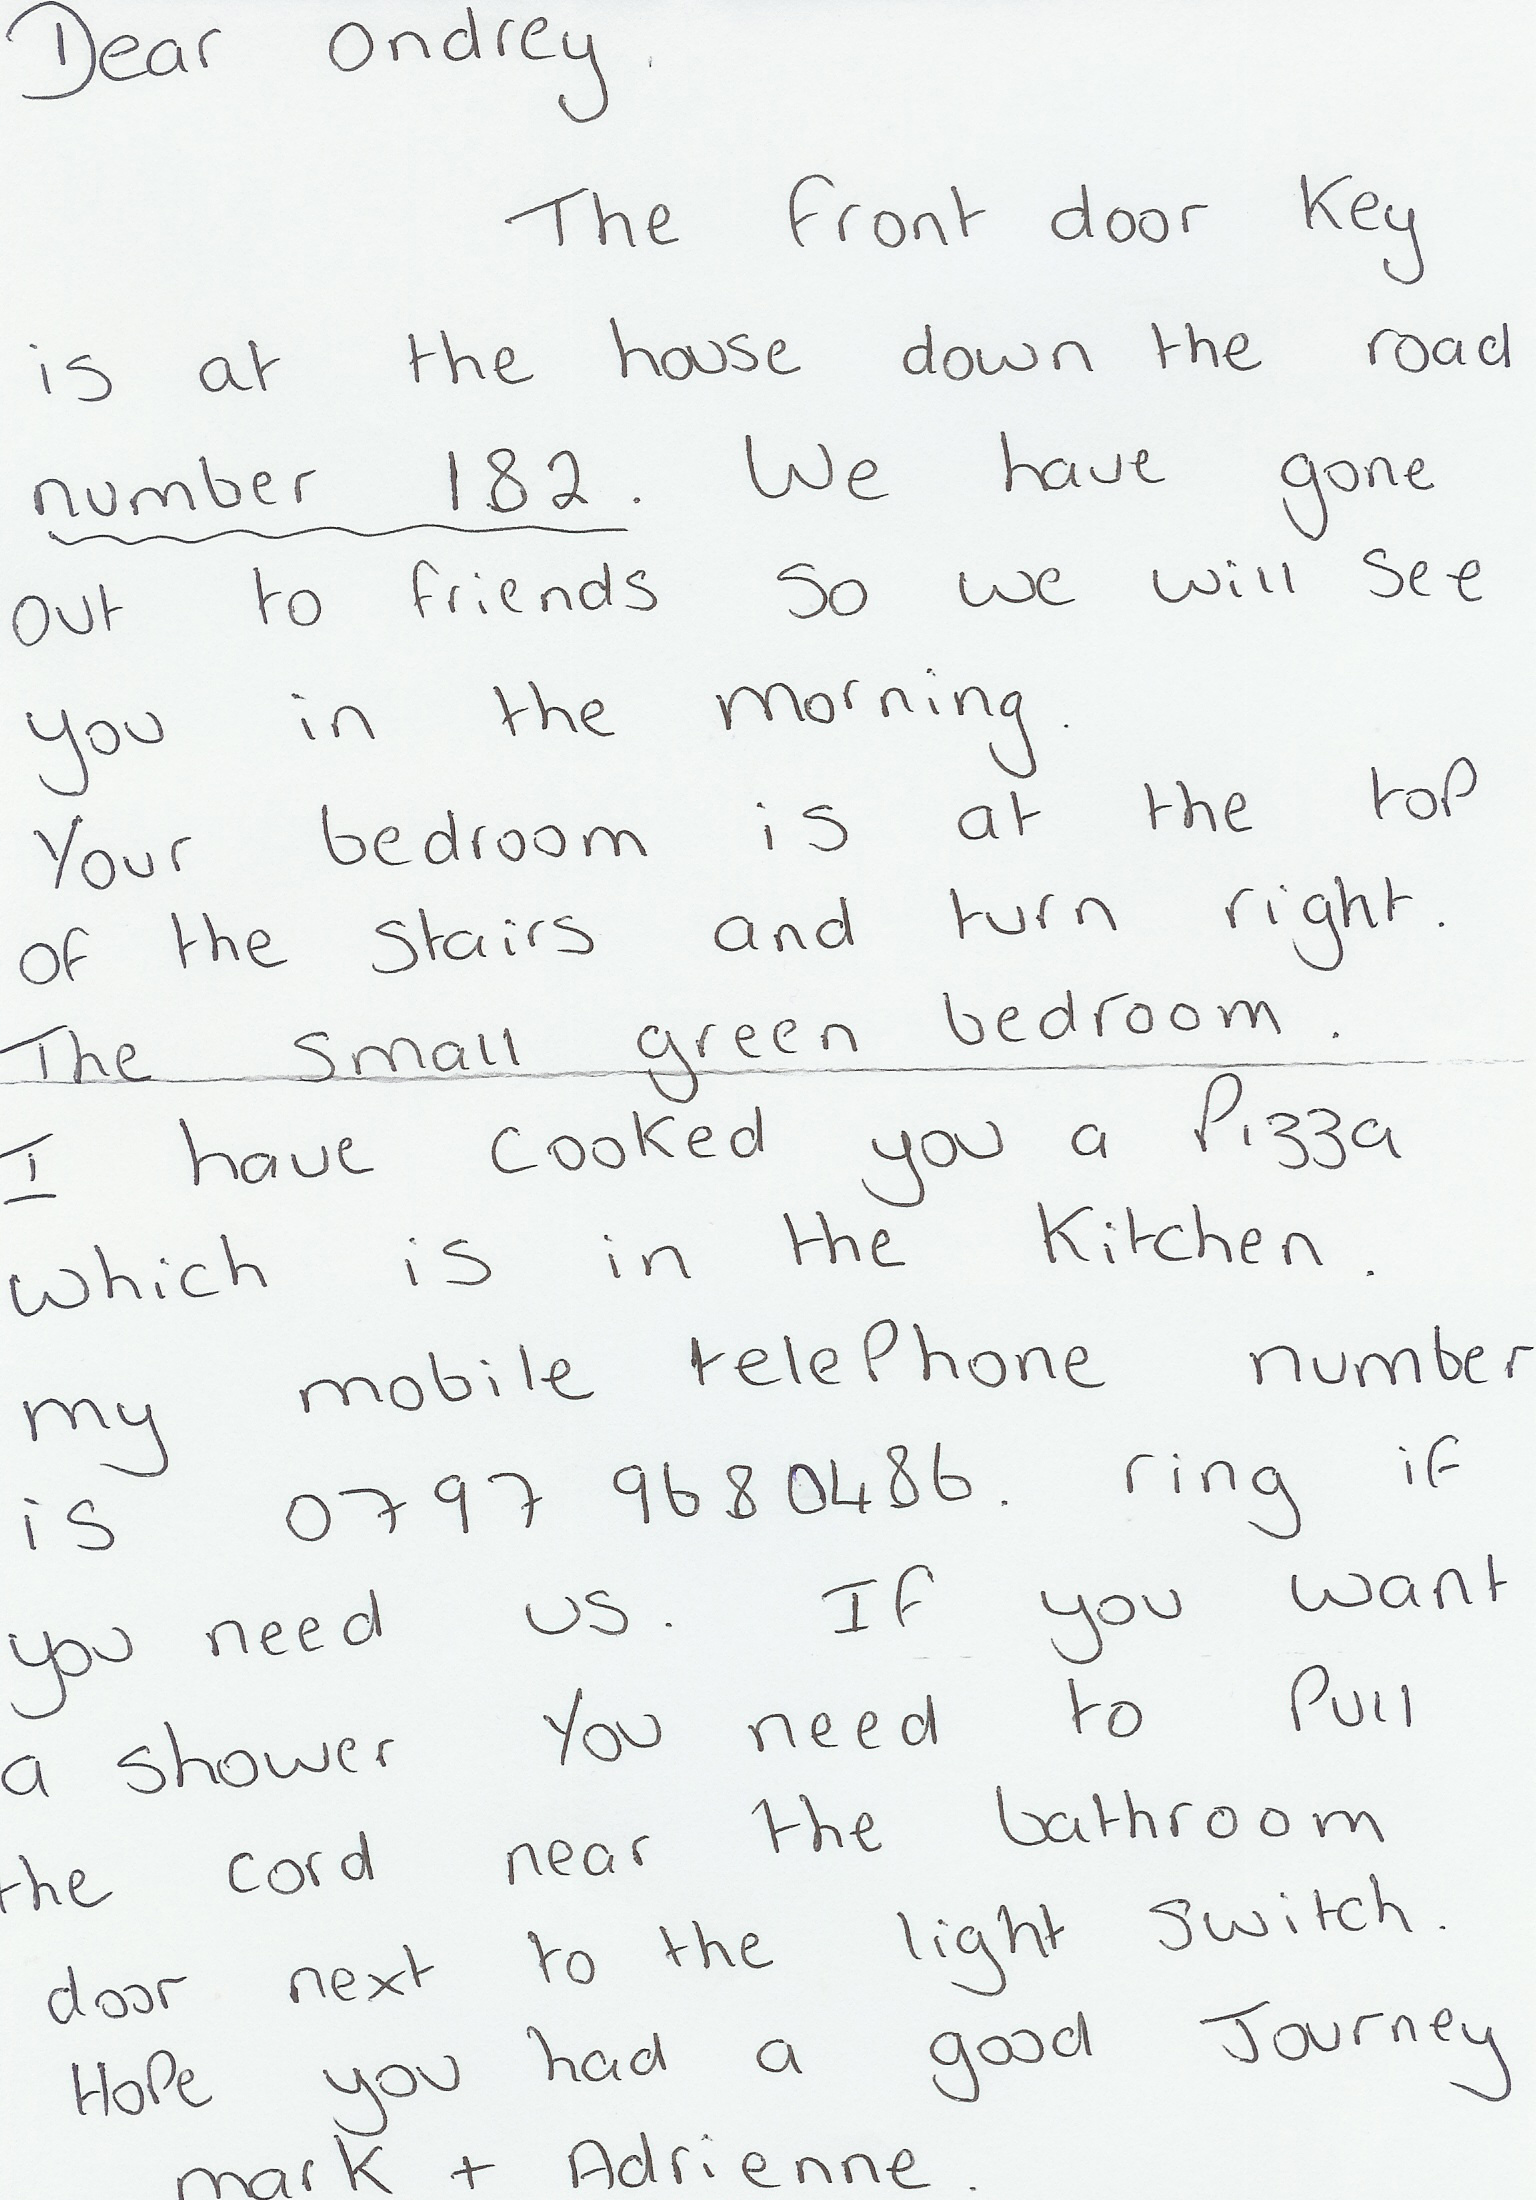 Dear Ondrey.
The front door key
is at the house down the road
number 182. We have gone
out to friends so we will see
you in the morning.
Your bedroom is at the top
of the stairs and turn right.
The small green bedroom.
I have cooked you a Pizza
which is in the Kitchen.
my mobile telePhone number
is 0797 9680486. ring if
you need us. If you want
a shower You need to Pull
the cord near the bathroom
door next to the light switch.
HoPe you had a good Journey
mark + Adrienne.